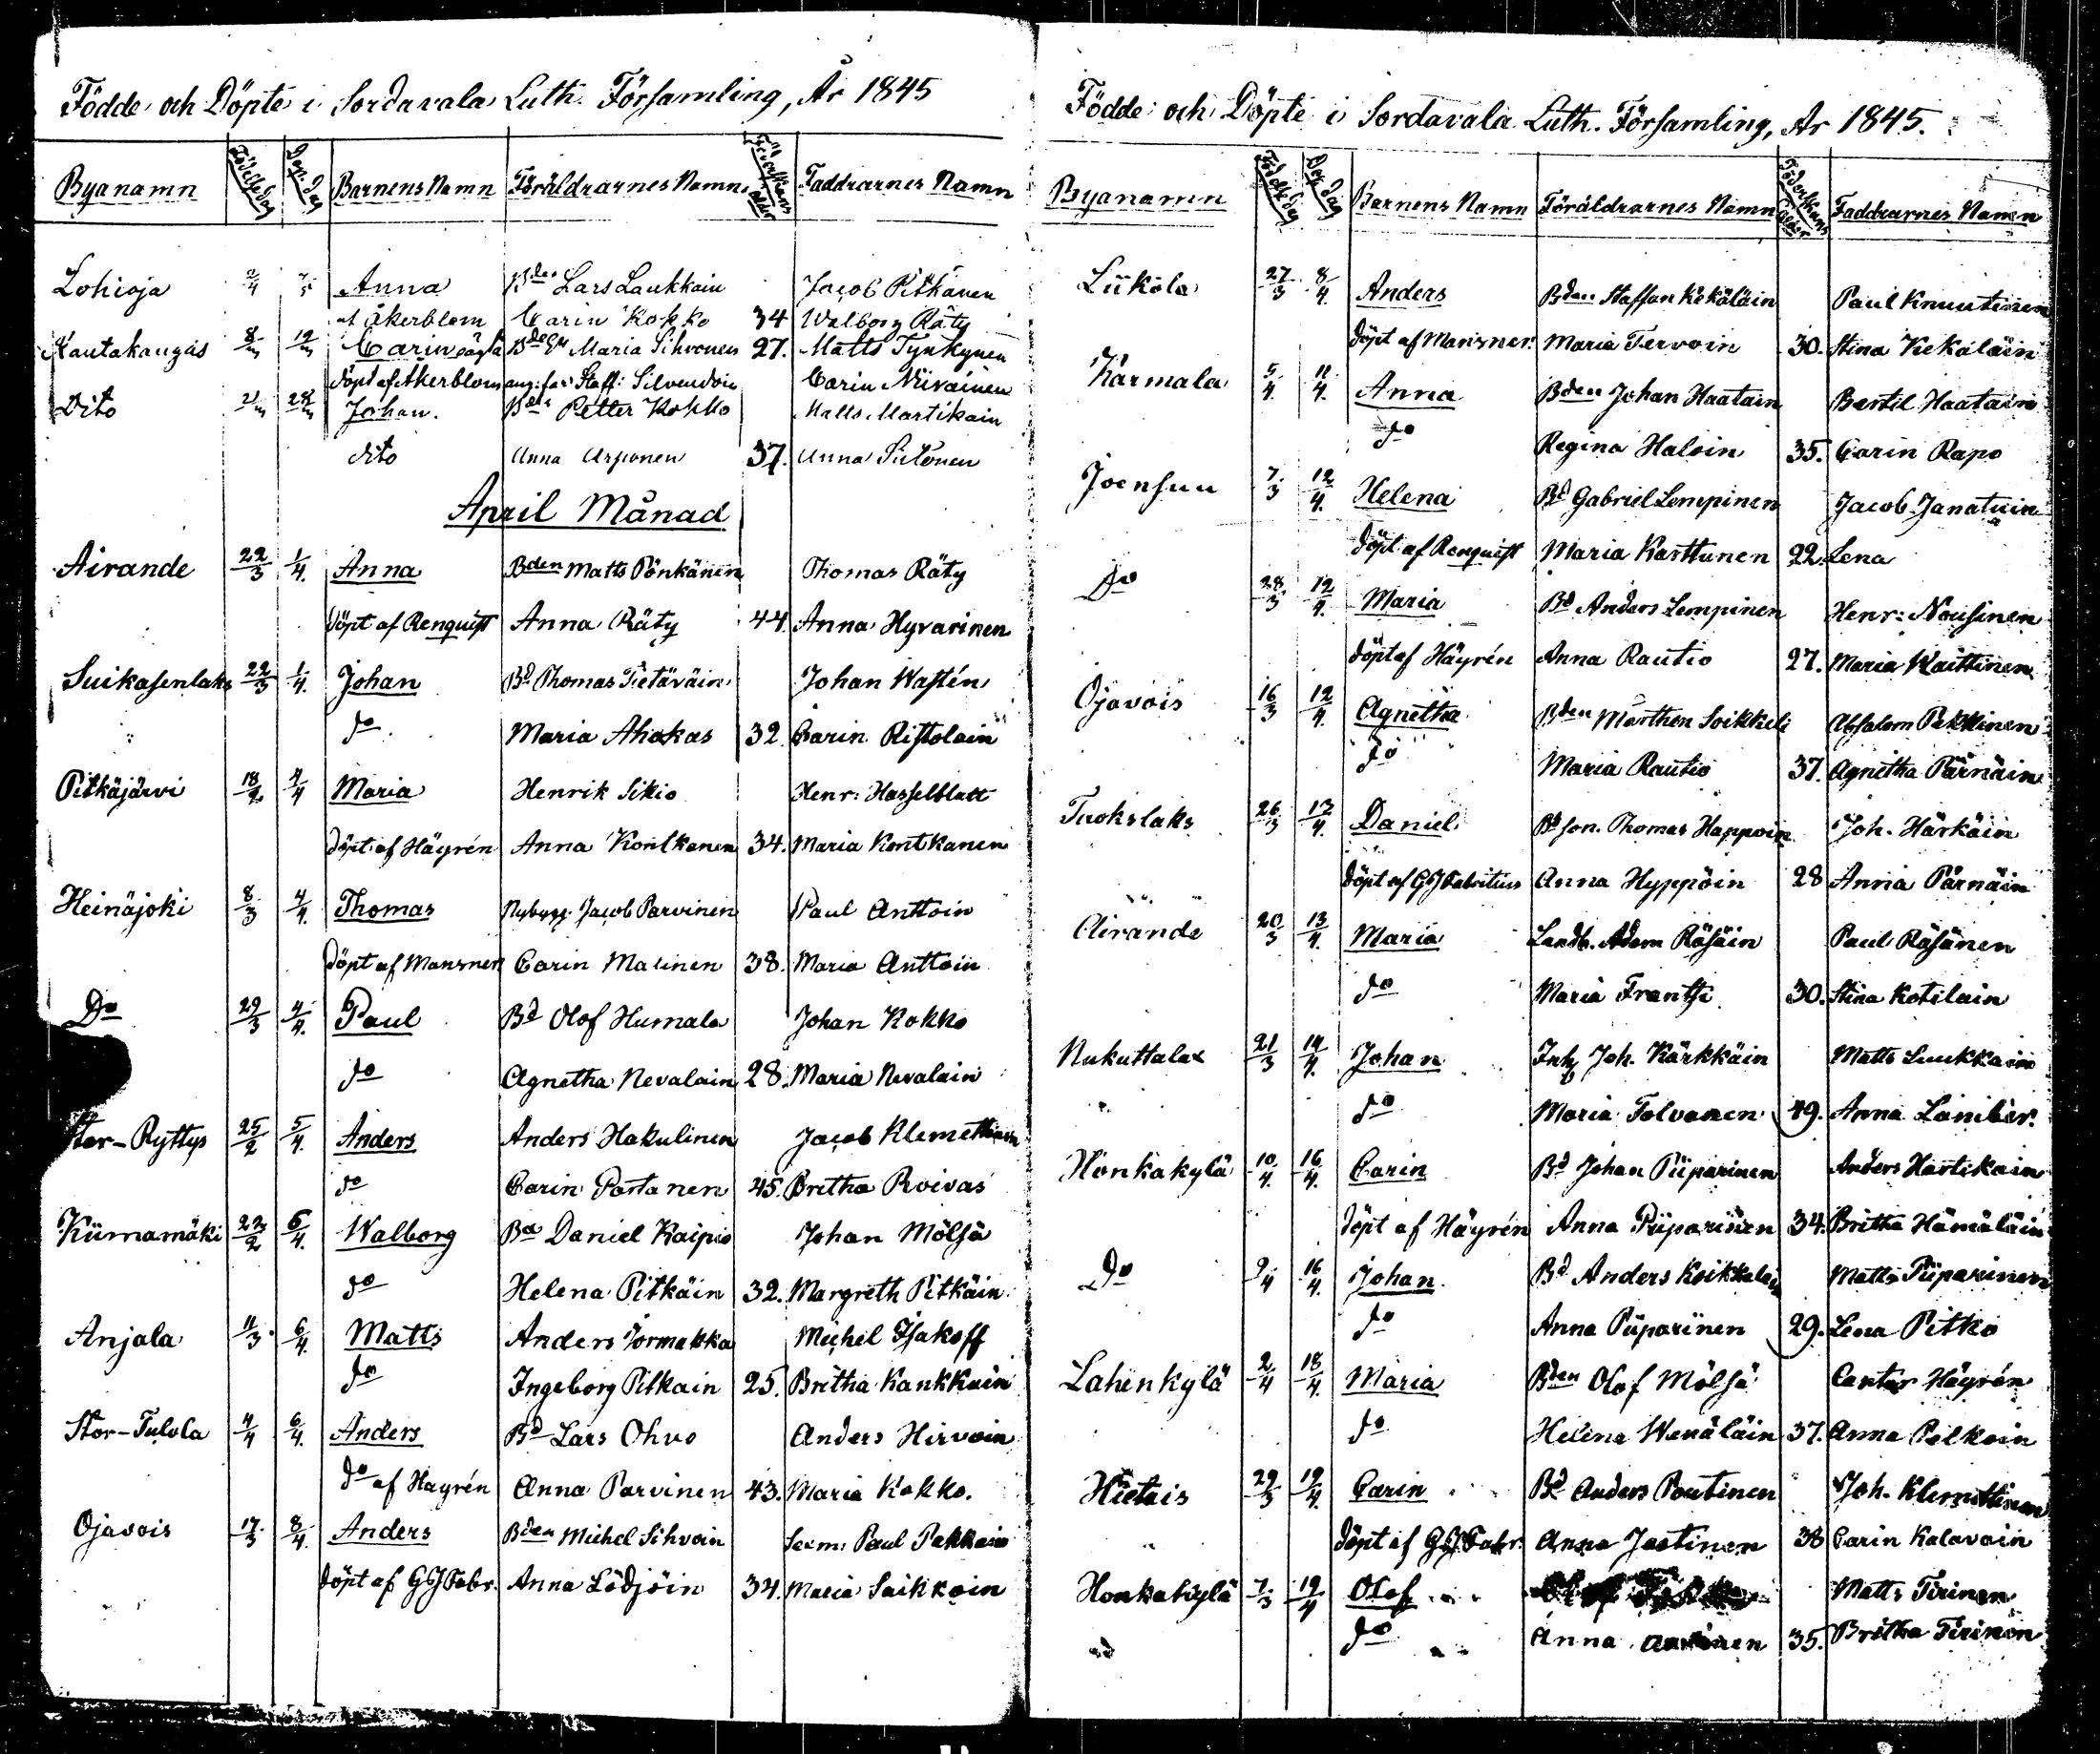 Födde och Döpte i Sordavala Luth. Församling, År 1845
Byanamn Födelsedag Dop. dag Barnens Namn Föräldrarnes Namn Faddrarnes Namn
Lohioja Anna Bden Lars Laukkain Jacob Pitkänen
af Åkerblom Carin Kokko 34 Walborg Räty
Kautakangas 8/3 12/3 Carin Maria Sihvonen 27. Matts Tynkynen
döpt af Åkerblom Carin Niiräinen
Dito Johan. Bden Petter Kokko Matts Martikain
dito Anna Arponen 37. Anna Siitonen
April Månad
Airande 22/3 1/4. Anna Bden Matts Pönkänen Thomas Räty
döpt af Renquist Anna Räty 44. Anna Hyvarinen
Suikasenlaks 22/3 1/4. Johan Bd Thomas Tietäväin Johan Wastén
do Maria Ahokas 32. Carin Ristolain
Pitkäjärvi 18/2 4/4 Maria Henrik Sikio Henr: Hasselblatt
döpt af Häyrén Anna Kontkanen 34. Maria Kontkanen
Heinäjoki 8/3 4/4. Thomas Nybygg. Jacob Parvinen Paul Anttoin
döpt af Mansner Carin Malinen 38. Maria Anttoin
Do 29/3 4/4. Paul Bd Olof Humala Johan Kokko
do Agnetha Nevalain 28. Maria Nevalain
Stor-Ryttys 25/2 5/4. Anders Anders Hakulinen Jacob Klemettinen
do Carin Partanen 45. Britha Roivas
Kiimamäki 22/2 6/4. Walborg Bd Daniel Kaipio Johan Mölsä
do Helena Pitkäin 32. Margreth Pitkäin
Anjala 11/3 6/4. Matts Anders Jormakka Michel Isakoff
do Ingeborg Pitkain 25. Britha Kankkuin
Stor-Tulola 4/4 6/4. Anders Bd Lars Ohvo Anders Hirvoin
do af Hayrén Anna Parvinen 43. Maria Kokko.
Ojavois 17/3 8/4. Anders Bden Michel Sihvoin Paul Pekkain
döpt af GJ Fabr. Anna Lödjöin 34. Maria Saikkoin
Födde och Döpte i Sordavala Luth. Församling, År 1845.
Byanamn Födelsedag Dop. dag Barnens Namn Föräldrarnes Namn Faddrarnes Namn
Liikola 27/3 8/4. Anders Bden Staffan Kekäläin Paul Knuutinen
döpt af Mansner. Maria Tervoin 30. Stina Kekäläin
Kärmala 5/4. 11/4. Anna Bden Johan Haatain Bertil Haatain
do Regina Haloin 35. Carin Rapo
Joensuu 7/3 12/4. Helena Bd Gabriel Lempinen Jacob Janatuin
döpt af Renquist Maria Karttunen 22. Lena
Do 28/3 12/4. Maria Bd Anders Lempinen Henr: Nousinen
döpt af Häyrén Anna Rautio 27. Maria Kaittinen
Ojavois 16/3 12/4. Agnetha Bden Mårthen Soikkeli Absalom Pekkinen
do Maria Rautio 37. Agnetha Pärnäin
Tuokslaks 26/3 13/4. Daniel Bdson. Thomas Happoin Joh. Härkäin
döpt af GJ Fabritius Anna Hyppöin 28 Anna Pärnäin
Airande 20/3 13/4. Maria Landb. Adam Räsäin Paul Räsänen
do Maria Frantsi 30. Stina Kotilain
Nukuttalax 21/3 14/4. Johan Inh Joh. Kärkkäin Matts Luukkain
do Maria Tolvanen 49. Anna Laniber.
Honkakylä 10/4. 16/4. Carin Bd Johan Piiparinen Anders Hartikain
döpt af Häyrén Anna Piiparinen 34. Britha Hämäläin
Do 9/4 16/4. Johan. Bd Anders Koikkalain Matts Piiparinen
do Anna Piiparinen 29. Lena Pitko
Lahenkylä 2/4 18/4. Maria Bden Olof Mölsä Cantor Häyrén
do Helena Wenäläin 37. Anna Pelkoin
Hietais 29/3 19/4. Carin Bd Anders Poutinen Joh. Klemettinen
döpt af GJ Fabr. Anna Jaatinen 38 Carin Kalavain
Honkakylä 7/3 19/4 Olof Matts Tirinen
do Anna 35. Britha Tirinen